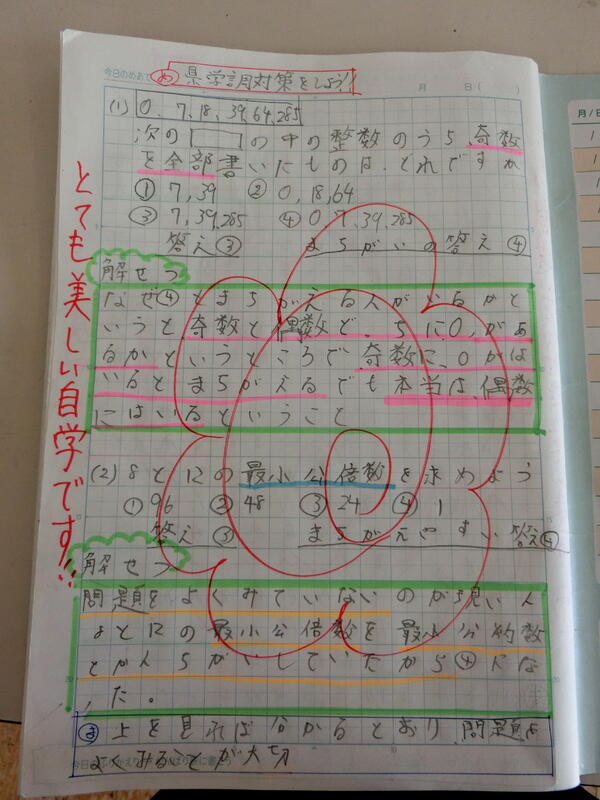 今日のめあて め 県学調対策をしよう!
月 日( )
(1) 0, 7, 18, 39, 64, 285
次の□の中の整数のうち、奇数
を全部書いたものは、どれですか
① 7,39 ② 0,18,64
③ 7,39,285 ④ 0,7,39,285
答え③ まちがいの答え④
解せつ
なぜ④とまちがえる人がいるかと
いうと奇数と偶数ど、ちに0,があ
るかというところで奇数に、0がは
いるとまちがえるでも本当は、偶数
にはいるということ
(2) 8と12の最小公倍数を求めよう
①96 ②48 ③24 ④1
答え③ まちがえやすい答え④
解せつ
問題をよくみていないのが
8と12の最小公倍数を最小公約数
とかんちがいしていたから④にな
った。
ま 上を見れば分かるとおり、問題を
よくみることが大切
とても美しい自学です!!
月/日